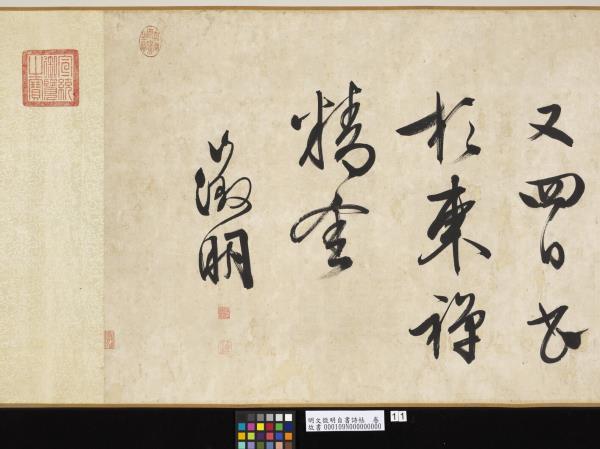 又四日書
於東禪
精舍
徵明
宣統御覽之寶
明文徵明自書詩帖 卷
故書000109N000000000
11